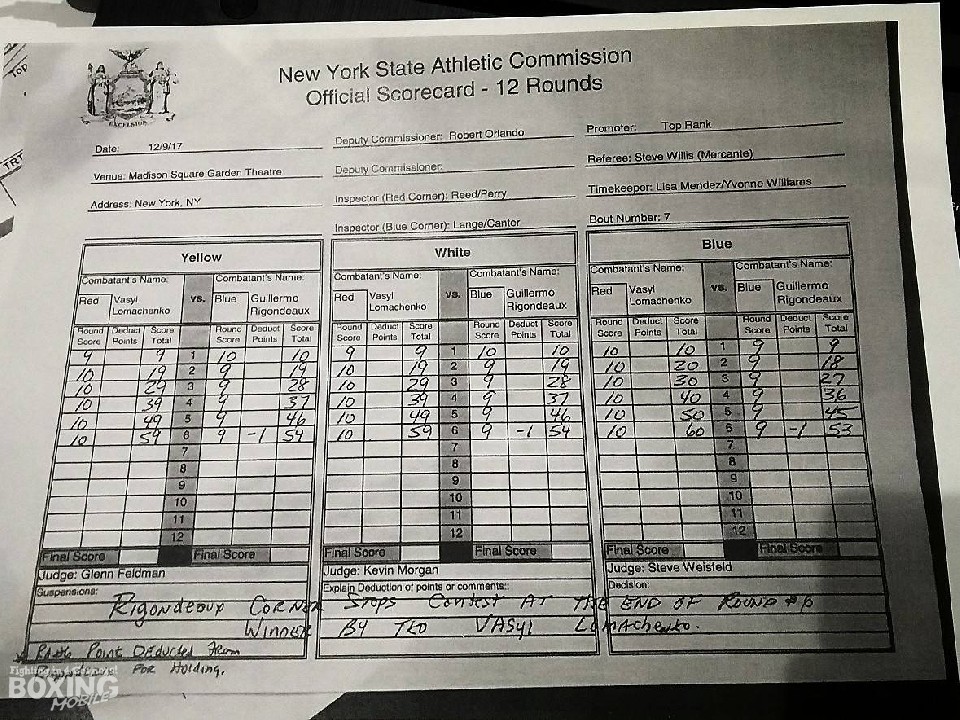 TOP
TRT
EXCELSIOR
New York State Athletic Commission
Official Scorecard - 12 Rounds
Date: 12/9/17
Deputy Commissioner: Robert Orlando
Promoter: Top Rank
Venue: Madison Square Garden Theatre
Deputy Commissioner:
Referee: Steve Willis (Mercante)
Address: New York, NY
Inspector (Red Corner): Reed/Perry
Timekeeper: Lisa Mendez/Yvonne Williams
Inspector (Blue Corner): Lange/Cantor
Bout Number: 7
Yellow
Combatant's Name: Combatant's Name:
Red Vasyl Lomachenko vs. Blue Guillermo Rigondeaux
Round Score Deduct Points Score Total Round Score Deduct Points Score Total
9 9 1 10 10
10 19 2 9 19
10 29 3 9 28
10 39 4 9 37
10 49 5 9 46
10 59 6 9 -1 54
7
8
9
10
11
12
Final Score Final Score
Judge: Glenn Feldman
Suspensions:
White
Combatant's Name: Combatant's Name:
Red Vasyl Lomachenko vs. Blue Guillermo Rigondeaux
Round Score Deduct Points Score Total Round Score Deduct Points Score Total
9 9 1 10 10
10 19 2 9 19
10 29 3 9 28
10 39 4 9 37
10 49 5 9 46
10 59 6 9 -1 54
7
8
9
10
11
12
Final Score Final Score
Judge: Kevin Morgan
Explain Deduction of points or comments:
Blue
Combatant's Name: Combatant's Name:
Red Vasyl Lomachenko vs. Blue Guillermo Rigondeaux
Round Score Deduct Points Score Total Round Score Deduct Points Score Total
10 10 1 9 9
10 20 2 9 18
10 30 3 9 27
10 40 4 9 36
10 50 5 9 45
10 60 6 9 -1 53
7
8
9
10
11
12
Final Score Final Score
Judge: Steve Weisfeld
Decision:
Rigondeaux Corner Stops Contest At The End of Round #6
Winner By TKO Vasyl Lomachenko.
Point Deducted From
For Holding.
BOXING
MOBILE